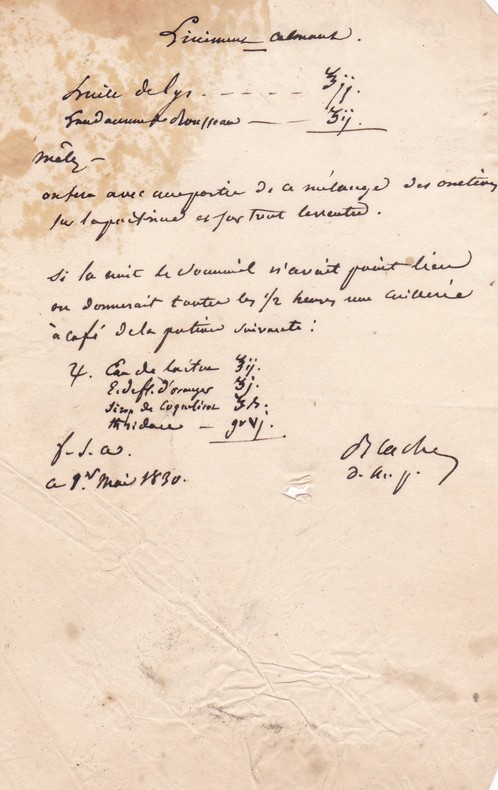 Liniment calmant.
huile de lys - - - - - ℥ij
Laudanum de Rousseau — ʒij.
Mêlez —
on fera avec une portie de ce mélange des onctions
sur la poitrine et sur tout le ventre.
Si la nuit le sommeil n'avait point lieu
on donnerait toutes les 1/2 heures une cuillerée
à café de la potion suivante :
♃. Eau de laitue ℥ij.
E. de fl. d'oranger ʒj.
Sirop de Coquelicot ℥ß.
thridace — gr vj.
f. s. a.
a 1er Mai 1830.
Blache
d. m. p.